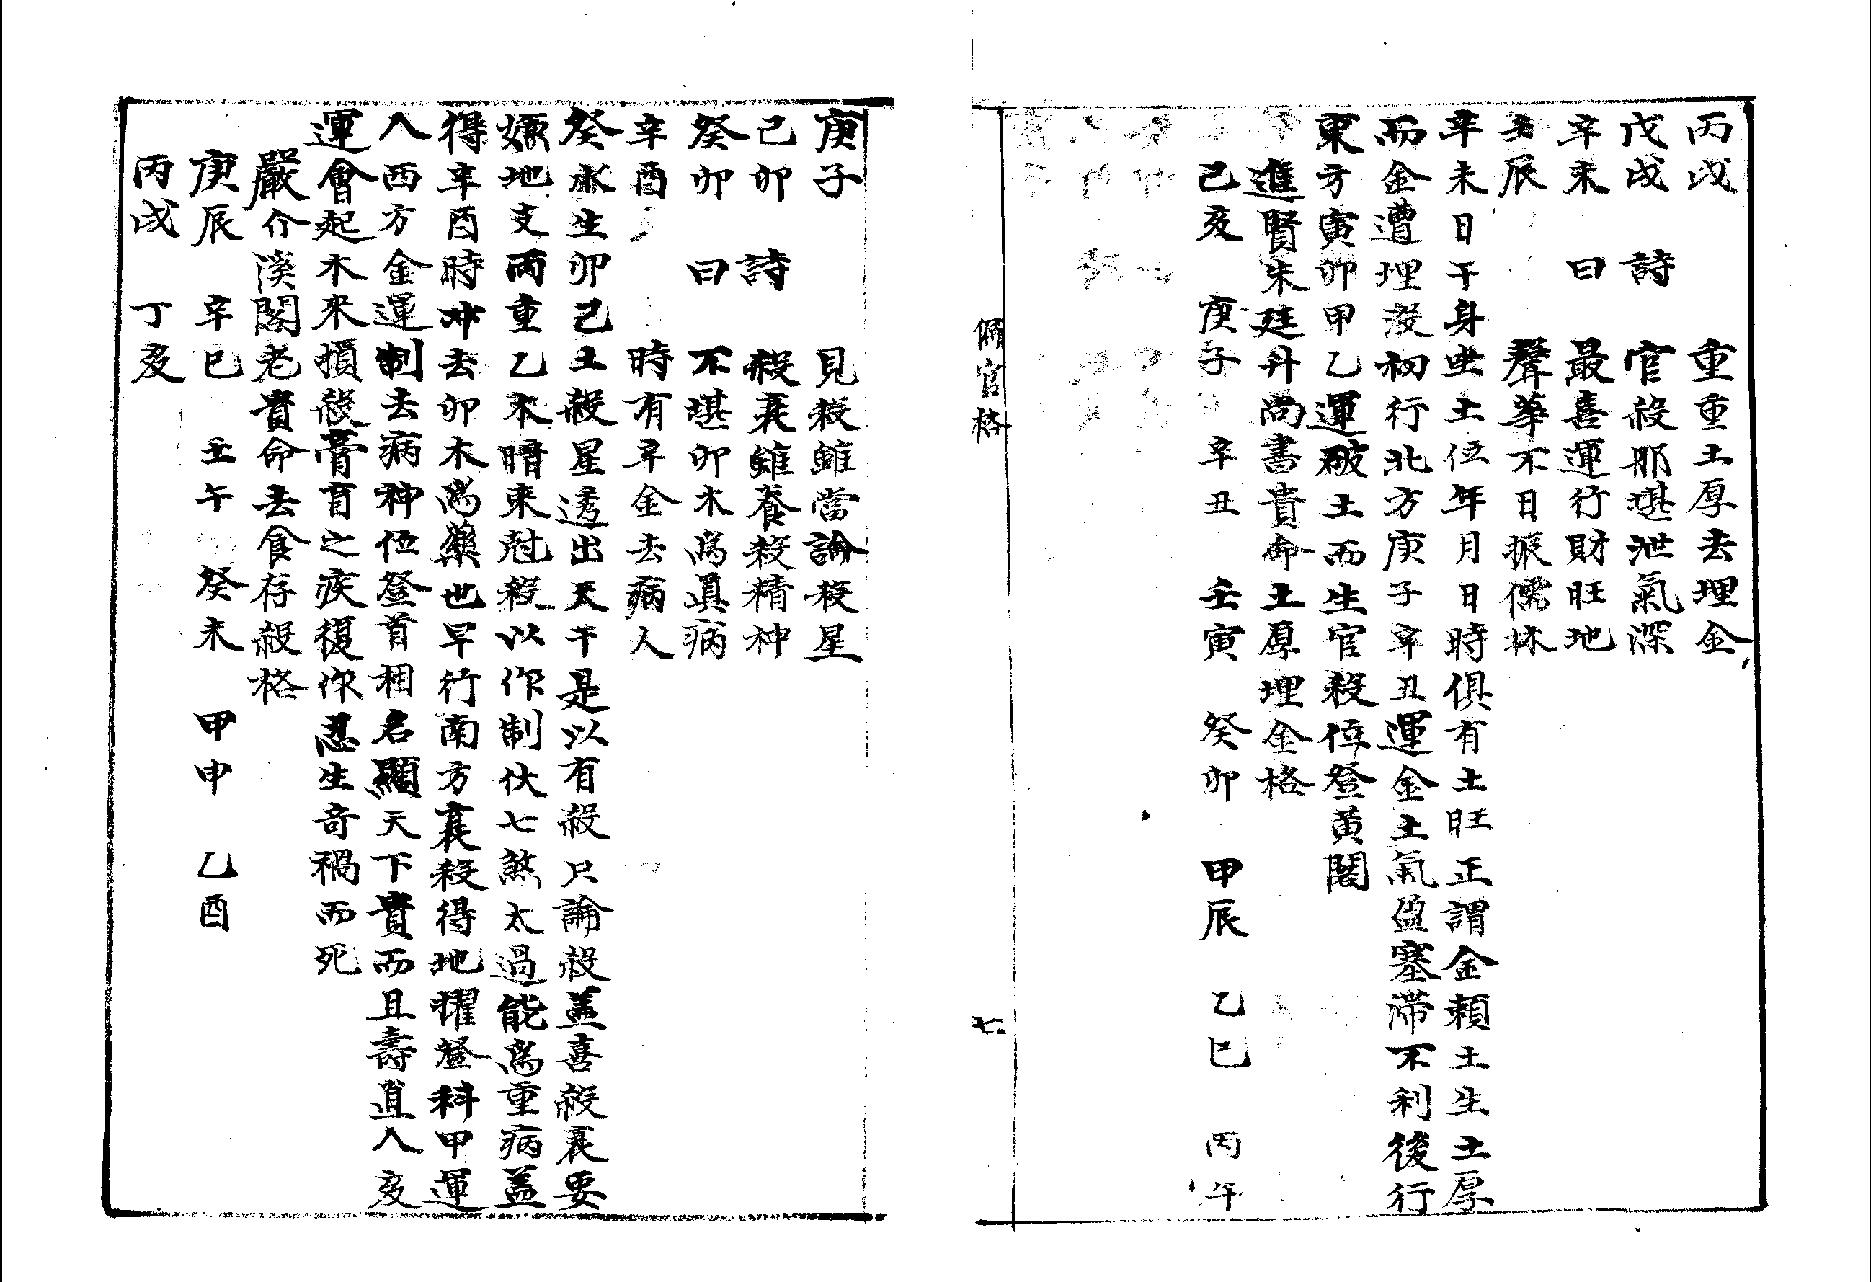 丙戌 重重土厚去埋金
戊戌 詩 官殺那堪泄氣深
辛未 曰 最喜運行財旺地
壬辰 聲華不日振儒林
辛未日干身坐土位年月日時俱有土旺正謂金賴土生土厚
而金遭埋沒初行北方庚子辛丑運金土氣盈塞滯不利後行
東方寅卯甲乙運破土而生官殺位登黄閣
進賢朱廷升尚書貴命土厚埋金格
己亥 庚子 辛丑 壬寅 癸卯 甲辰 乙巳 丙午
偏官格
七
庚子 見殺雖當論殺星
己卯 詩 殺衰雖養殺精神
癸卯 曰 不堪卯木為眞病
辛酉 時有辛金去病人
癸水生卯己土殺星透出天干是以有殺只論殺盖喜殺衰要
嫌地支两重乙木暗來尅殺以作制伏七煞太過能為重病盖
得辛酉時冲去卯木為藥也早行南方衰殺得地擢登科甲運
入西方金運制去病神位登首相名顯天下貴而且壽直入亥
運會起木來損殺膏肓之疾復作忍生奇禍而死
嚴介溪閣老貴命去食存殺格
庚辰 辛巳 壬午 癸未 甲申 乙酉
丙戌 丁亥